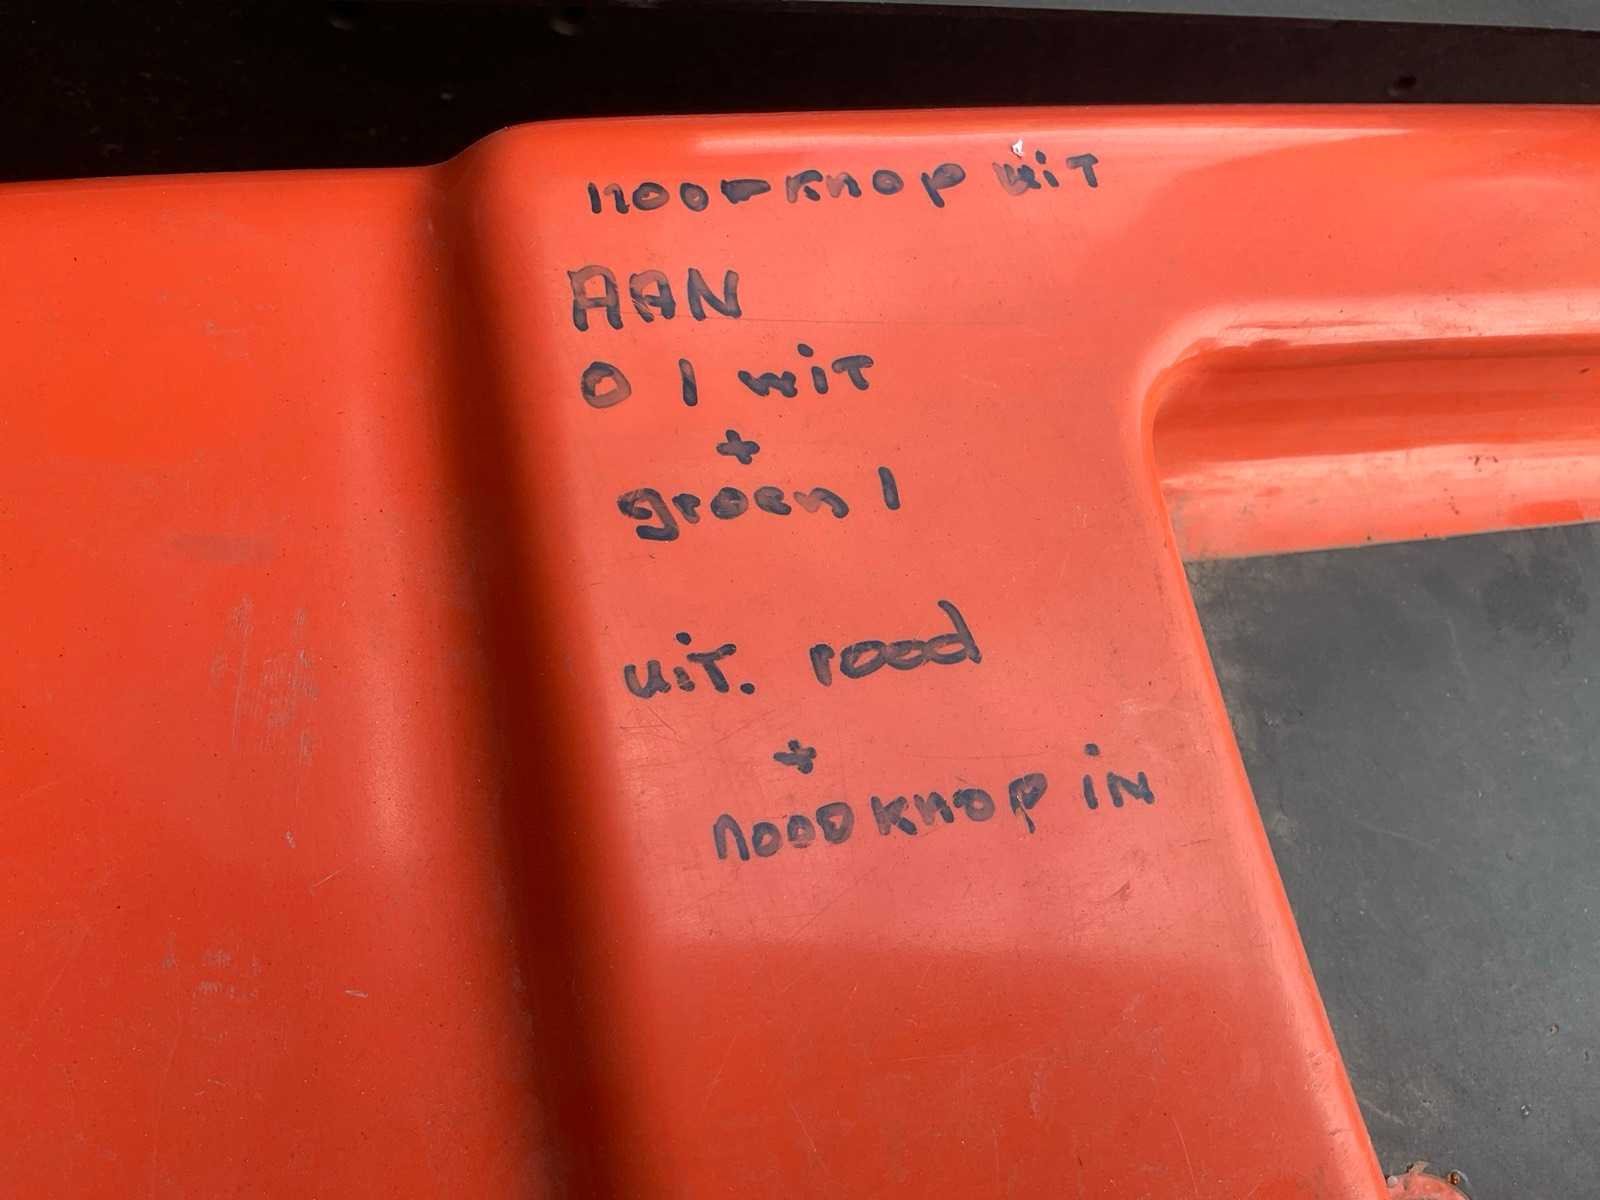 nooDknop uit
AAN
0 1 wit
+
groen 1
uit. rood
+
nooDknop in